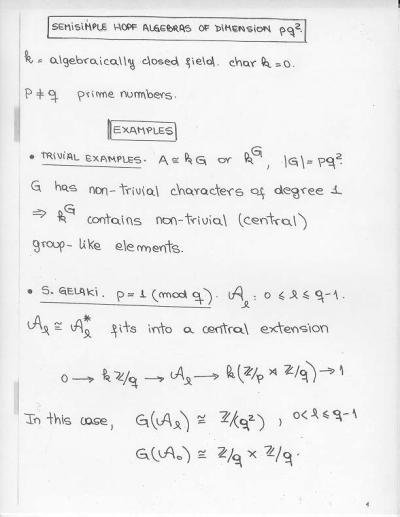 SEMISIMPLE HOPF ALGEBRAS OF DIMENSION pq².
k = algebraically closed field. char k = 0.
p ≠ q prime numbers.
EXAMPLES
• TRIVIAL EXAMPLES. A ≅ kG or k^G, |G| = pq².
G has non-trivial characters of degree 1
⇒ k^G contains non-trivial (central)
group-like elements.
• S. GELAKI. p = 1 (mod q). 𝒜_ℓ : 0 ≤ ℓ ≤ q-1.
𝒜_ℓ ≅ 𝒜_ℓ^* fits into a central extension
0 → k ℤ/q → 𝒜_ℓ → k(ℤ/p ⋊ ℤ/q) → 1
In this case, G(𝒜_ℓ) ≅ ℤ/(q²), 0 < ℓ ≤ q-1
G(𝒜_0) ≅ ℤ/q × ℤ/q.